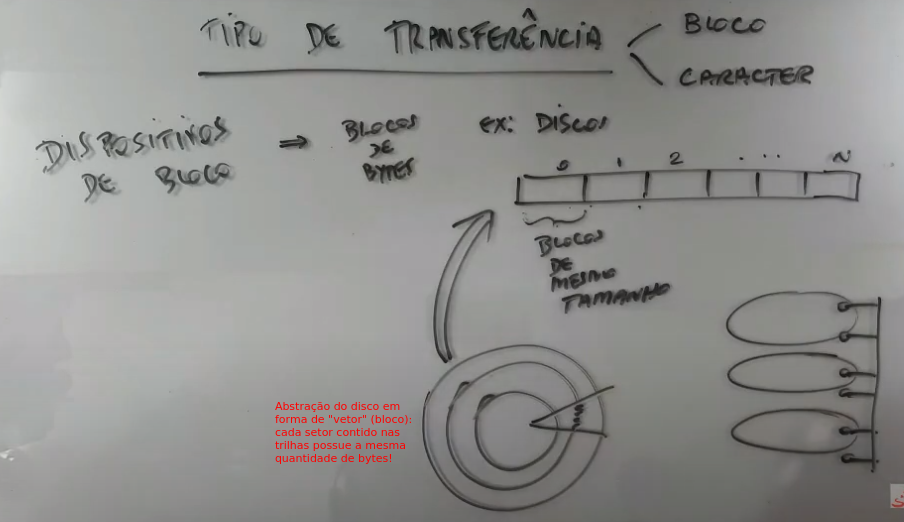 TIPO DE TRANSFERÊNCIA
BLOCO
CARACTER
DISPOSITIVOS
DE BLOCO
⇒
BLOCOS
DE
BYTES
EX: DISCOS
0 1 2 ... N
BLOCOS
DE
MESMO
TAMANHO
Abstração do disco em
forma de "vetor" (bloco):
cada setor contido nas
trilhas possue a mesma
quantidade de bytes!